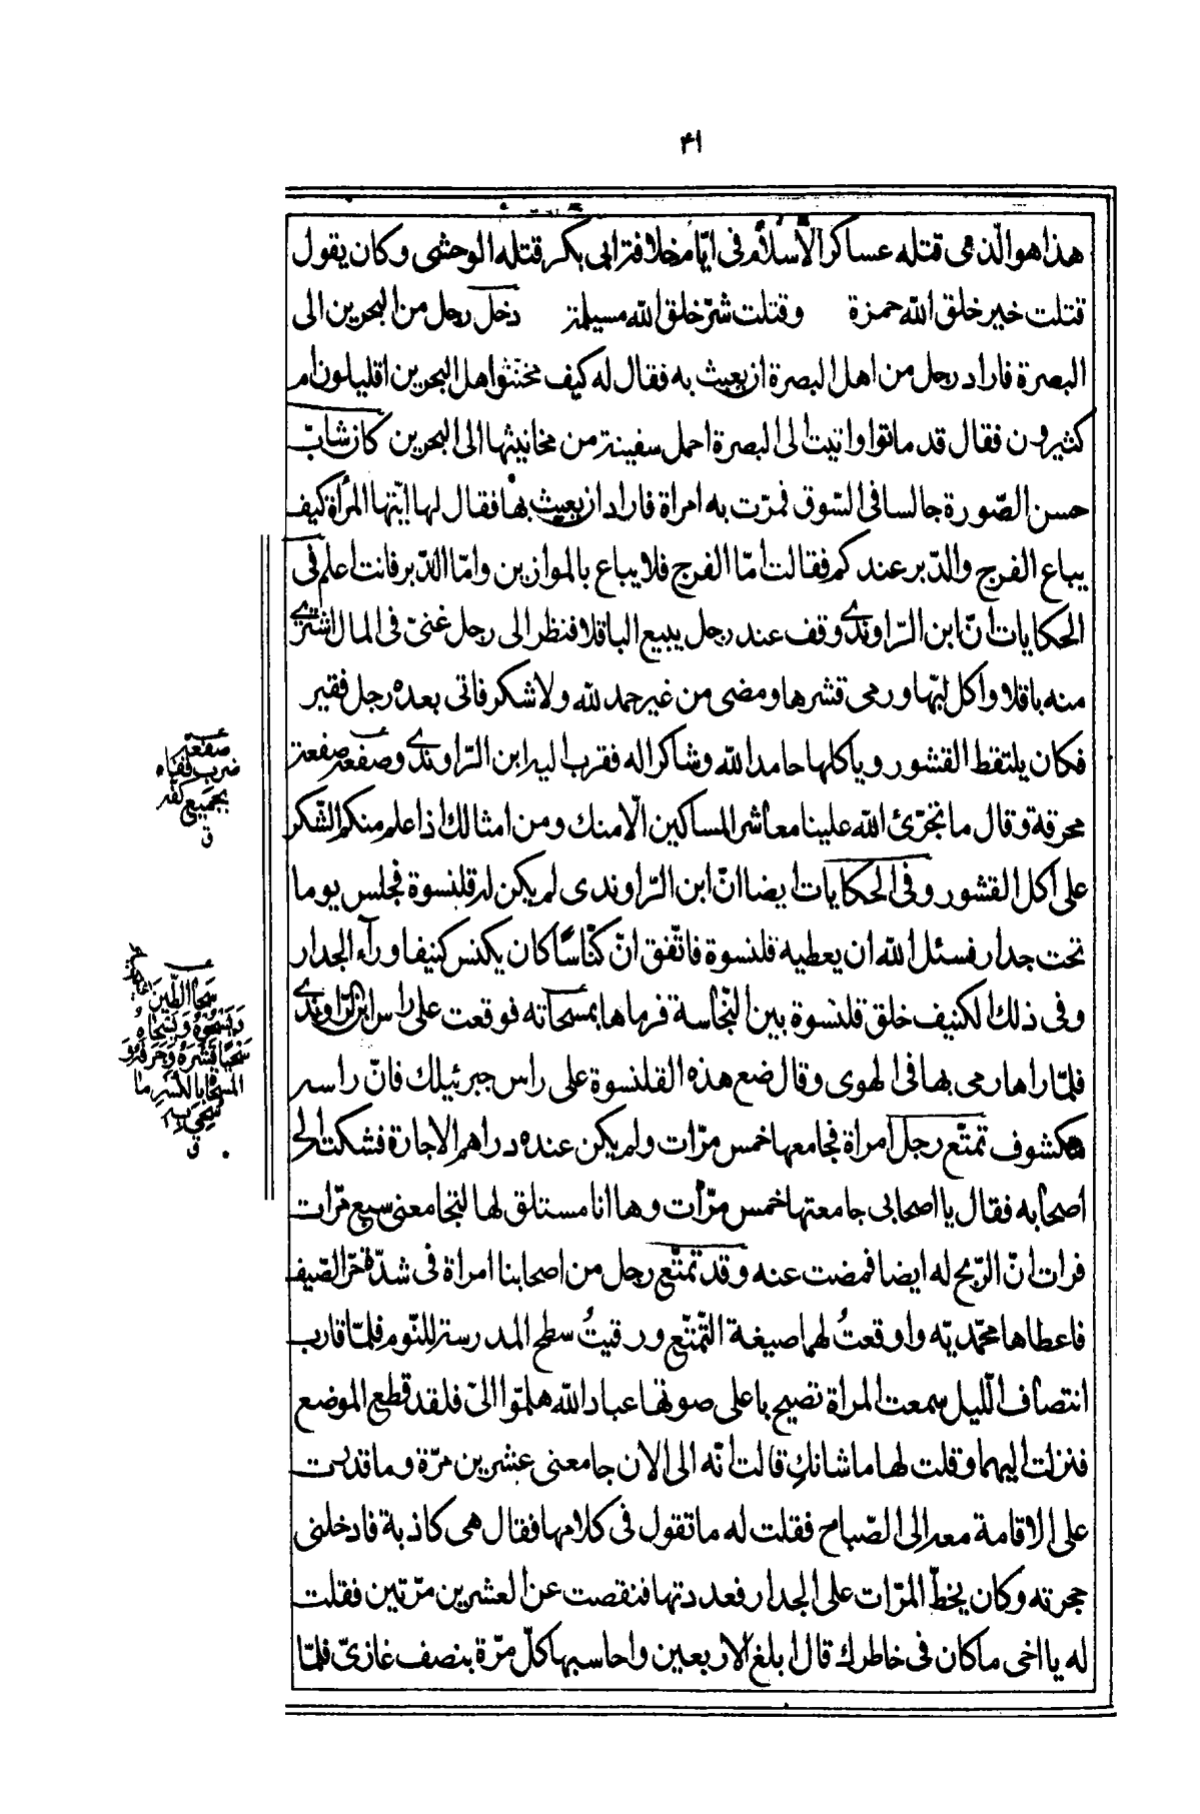 ٤١
هذا هو الّذى قتله عساكر الاسلام فى ايّام خلافة ابى بكر قتله الوحشى وكان يقول
قتلت خير خلق الله حمزة وقتلت شرّ خلق الله مسيلمة دخل رجل من البحرين الى
البصرة فاراد رجل من اهل البصرة ان يعبث به فقال له كيف مخنثوا اهل البحرين اقليلون ام
كثيرون فقال قد ماتوا واتيت الى البصرة احمل سفينة من مخانيثها الى البحرين كان شابّ
حسن الصّورة جالسا فى السّوق فمرّت به امراة فاراد ان يعبث بها فقال لها ايّتها المرأة كيف
يباع الفرج والدّبر عندكم فقالت امّا الفرج فلا يباع بالموازين وامّا الدّبر فانت اعلم فى
الحكايات انّ ابن الرّاوندى وقف عند رجل يبيع الباقلا فنظر الى رجل غنىّ فى المال اشترى
منه باقلا واكل لبّها ورمى قشرها ومضى من غير حمد لله ولا شكر فاتى بعده رجل فقير
فكان يلتقط القشور وياكلها حامدا لله وشاكرا له فقرب اليه ابن الرّاوندى وصفعه صفعة
محرقة وقال ما تجرّئ الله علينا معاشر المساكين الّا منك ومن امثالك اذا علم منكم الشّكر
على اكل القشور وفى الحكايات ايضا انّ ابن الرّاوندى لم يكن له قلنسوة فجلس يوما
تحت جدار فسئل الله ان يعطيه قلنسوة فاتّفق انّ كنّاسًا كان يكنس كنيفا ورآء الجدار
وفى ذلك الكنيف خلق قلنسوة بين النّجاسة فرماها بمسحاته فوقعت على راس ابن الرّاوندى
فلمّا راها رمى بها فى الهوى وقال ضع هذه القلنسوة على راس جبرئيلك فانّ راسه
مكشوف تمتّع رجل امراة فجامعها خمس مرّات ولم يكن عنده دراهم الاجارة فشكت الى
اصحابه فقال يا اصحابى جامعتها خمس مرّات وها انا مستلق لها لتجامعنى سبع مرّات
فرات انّ الرّبح له ايضا فمضت عنه وقد تمتّع رجل من اصحابنا امراة فى شدّة حرّ الصّيف
فاعطاها محمّديّه واوقعتُ لهما صيغة التّمتّع ورقيتُ سطح المدرسة للنّوم فلمّا قارب
انتصاف اللّيل سمعت المراة تصيح باعلى صوتها عباد الله هلمّوا الىّ فلقد قطع الموضع
فنزلت اليهما وقلت لها ما شانكِ قالت انّه الى الان جامعنى عشرين مرّة وما قدرت
على الاقامة معه الى الصّباح فقلت له ما تقول فى كلامها فقال هى كاذبة فادخلنى
حجرته وكان يخطّ المرّات على الجدار فعددتها فنقصت عن العشرين مرّتين فقلت
له يا اخى ما كان فى خاطرك قال ابلغ الاربعين واحاسبها كلّ مرّة بنصف غازىّ فلمّا
صفعه
ضرب قفاه
بجميع كفّه
ق
سحا الطّين
سحيا قشره وجرفه
المسحاة بالكسر ما
سحى به
ق